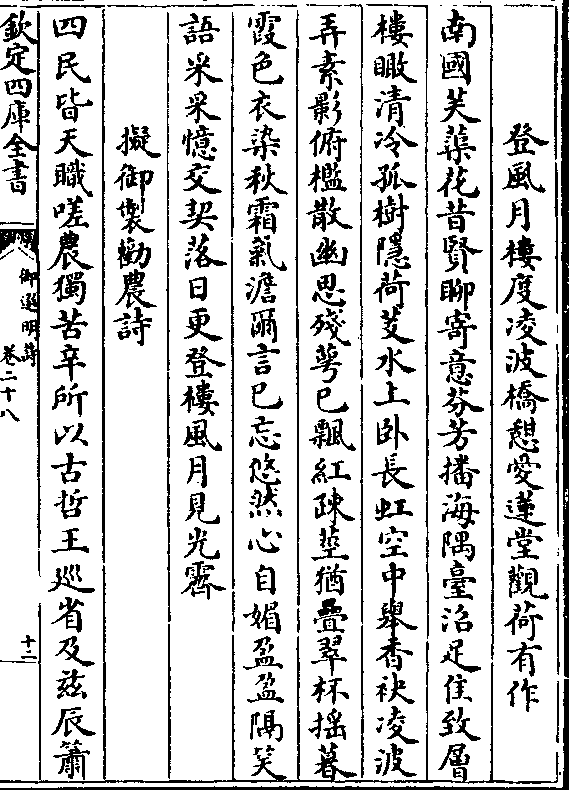 登風月樓度凌波橋憩愛蓮堂觀荷有作
南國芙蕖花昔賢聊寄意芬芳播海隅臺沼足佳致層
樓瞰清冷孤樹隱荷芰水上卧長虹空中舉香袂凌波
弄素影俯檻散幽思殘萼已飄紅疎莖猶疊翠杯搖暮
霞色衣染秋霜氣澹爾言已忘悠然心自媚盈盈隔笑
語采采憶交契落日更登樓風月見光霽
擬御製勸農詩
四民皆天職嗟農獨苦辛所以古哲王巡省及兹辰簫
欽定四庫全書
御選明詩
卷二十八
十二